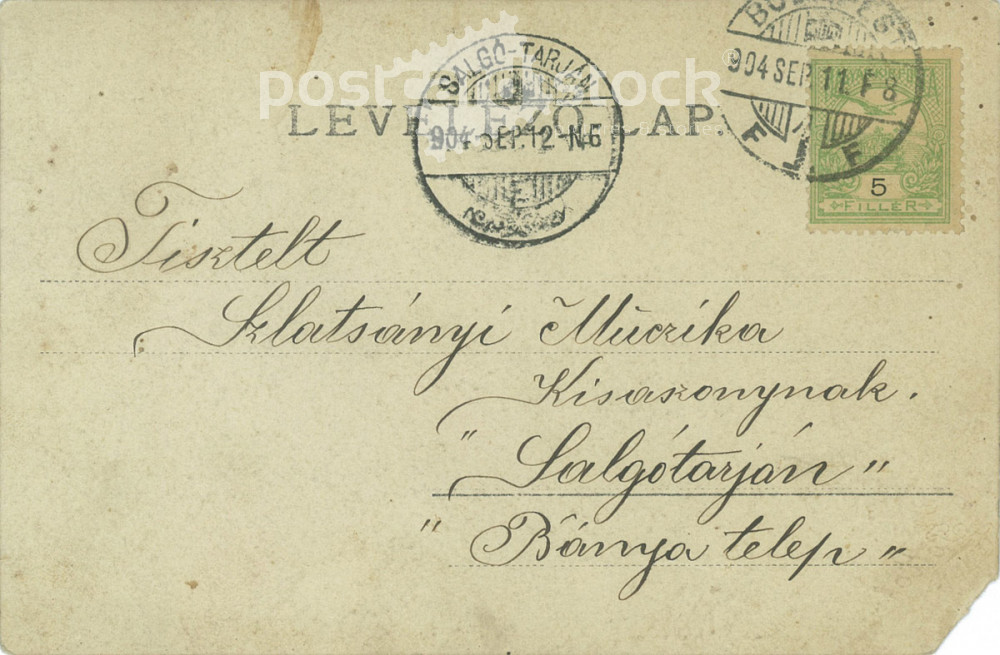 postcardstock
SALGÓ-TARJÁN
904 SEP.12-N.6
LEVELEZŐ-LAP.
BUDAPEST
904 SEP.11.F8
5
FILLÉR
Tisztelt
Szlatsányi Muczika
Kisaszonynak.
"Salgótarján"
"Bánya telep"